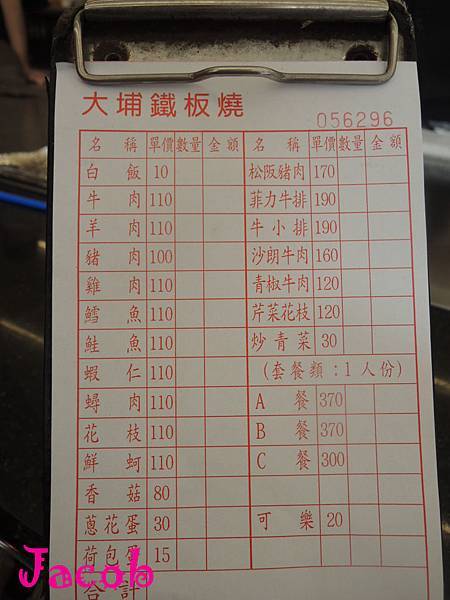 大埔鐵板燒
056296
名稱 單價 數量 金額 名稱 單價 數量 金額
白飯 10 松阪豬肉 170
牛肉 110 菲力牛排 190
羊肉 110 牛小排 190
豬肉 100 沙朗牛肉 160
雞肉 110 青椒牛肉 120
鱈魚 110 芹菜花枝 120
鮭魚 110 炒青菜 30
蝦仁 110 (套餐類:1人份)
蟳肉 110 A餐 370
花枝 110 B餐 370
鮮蚵 110 C餐 300
香菇 80
蔥花蛋 30 可樂 20
荷包蛋 15
合計
Jacob